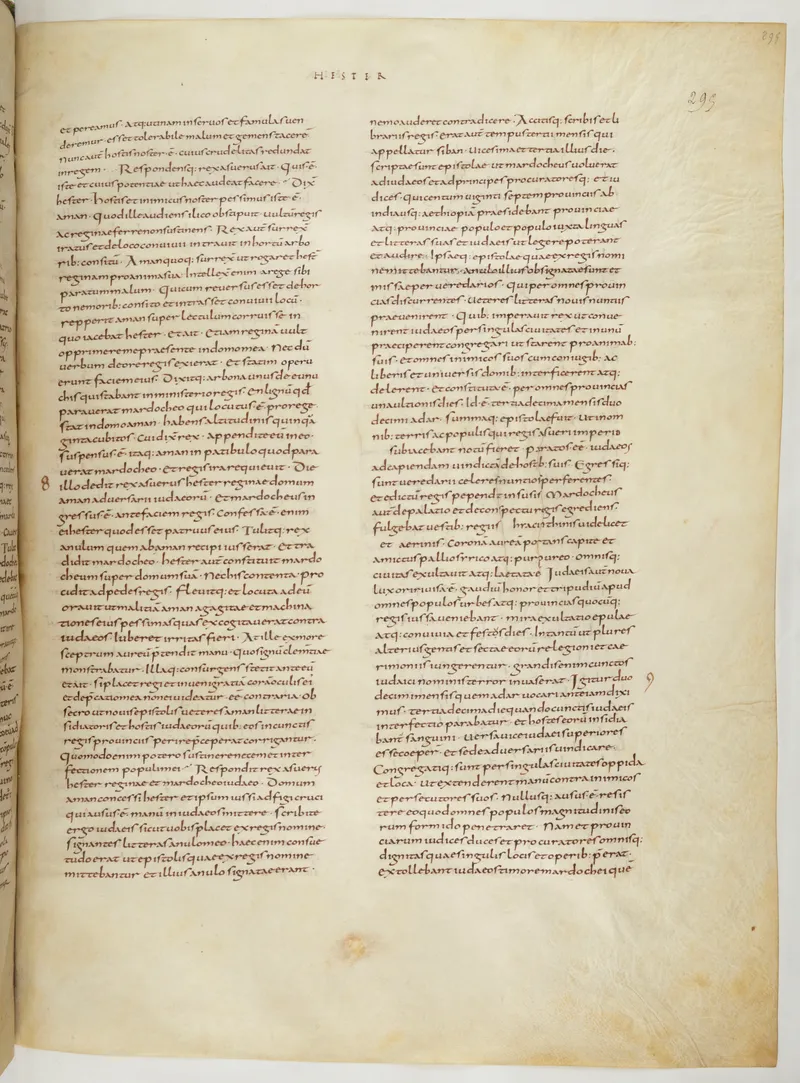 HESTER
299
293
et pereamus · Atq; utinam in seruos et famulas uen
deremur · esset tolerabile malum et gemens tacere
nunc autē hostis noster · ē · cuius crudelitas redundat
in regem · Respondensq; rex asuerus ait · Quis · ē ·
iste et cuius potentiae ut haec audeat facere · Dix̄
hester · Hostis et inimicus noster pessimus iste · ē ·
aman · Quod ille audiens ilico obstupuit · uultū regis
ac reginae ferre non sustinens · Rex aut̄ surrex̄
iratus et de loco conuiuii intrauit in hortū arbo
rib; consitū · Aman quoq; surrex̄ ut rogaret hest̄
reginam pro anima sua · Intellex̄ enim a rege sibi
paratum malum · Qui cum reuersus esset de hor
to nemorib; consito et intrasset conuiuii locū ·
repperit aman super lectulum corruisse in
quo iacebat hester · et ait · etiam reginā uult
opprimere me praesente in domo mea · Nec dū
uerbum de ore regis exierat · et statim operu
erunt faciem eius · Dixitq; arbona unus de eunu
chis qui stabant in ministerio regis · En lignū qd̄
parauerat mardocheo qui locutus · ē · pro rege ·
stat in domo aman · habens altitudinis quinqua
ginta cubitos · Cui dix̄ rex · Appendite eū in eo ·
suspensus · ē · itaq; aman in patibulo quod para
uerat mardocheo · et regis ira requieuit · Die
8
illo dedit rex asuerus hester reginae domum
aman aduersarii iudaeorū · et mardocheus in
gressus · ē · ante faciem regis · Confessa · ē · enim
ei hester quod esset patruus eius · Tulitq; rex
anulum quem ab aman recipi iusserat · et tra
didit mardocheo · hester aut̄ constituit mardo
cheum super domum suā · Nec his contenta · pro
cidit ad pedes regis · fleuitq; et locuta ad eū
orauit ut malitiā aman agagitae et machina
tiones eius pessimas quas excogitauerat contra
iudaeos iuberet irritas fieri · At ille ex more
sceptrum aureū p̄tendit manu · quo signū clementiae
monstrabatur · Illaq; consurgens stetit ante eū
et ait · si placet regi et inueni gratiā corā oculis ei
et depcatio mea n̄ ei uidetur · ee contraria · ob
secro ut nouis epistolis ueteres aman literae in
sidiatoris et hostis iudaeorū quib; eos in cunctis
regis prouinciis perire p̄ceperat corrigantur ·
Quomodo enim potero sustinere necem et inter
fectionem populi mei · Respondit rex asuerus
hester reginae et mardocheo iudaeo · Domum
aman concessi hester · et ipsum iussi adfigi cruci
quia ausus · ē · manū in iudaeos mittere · scribite
ergo iudaeis sicut uobis placet ex regis nomine ·
signantes literas anulo meo · haec enim consue
tudo erat ut epistolis quae ex regis nomine
mittebantur · et illius anulo signatae erant ·
nemo auderet contradicere · Accitisq; scribis et li
brariis regis · erat aut̄ tempus tertii mensis qui
appellatur siban · uicesima et tertia illius die ·
scriptae sunt epistolae · ut mardocheus uoluerat
ad iudaeos et ad principes procuratoresq; · et iu
dices · qui centum uiginti septem prouinciis ab
india usq; aethiopiā praesidebant prouinciae
atq; prouinciae · populo et populo iuxta linguas
et literas suas et iudaeis ut legere poterant
et audire · Ipsaeq; epistolae quae ex regis nomi
ne mittebantur · anulo illius obsignatae sunt et
missae per ueredarios · Qui per omnes prouin
cias discurrentes · ueteres literas nouis nuntiis
praeuenirent · Quib; imperauit rex ut conue
nirent iudaeos per singulas ciuitates et in unū
praeciperent congregari ut starent pro animab;
suis · et omnes inimicos suos cum coniugib; ac
liberis et uniuersis domib; interficerent atq;
delerent · et constituta · ē · per omnes prouincias
una ultionis dies · Id · ē · tertia decima mensis duo
decimi adar · summaq; epistolae fuit · ut in om
nib; terris ac populis qui regis asueri imperio
subiacebant notū fieret · paratos ee · iudaeos
ad capiendam uindictā de hostib; suis · Egressiq;
sunt ueredarii celeres nuntios perferentes ·
et edictū regis pependit in susis · Mardocheus
aut̄ de palatio et de conspectu regis egrediens ·
fulgebat uestib; regiis · hiacinthinis uidelicet
et aerinis · Coronā aureā portans capite et
amictus pallio sirico atq; purpureo · omnisq;
ciuitas exultauit atq; laetata · ē · Iudaeis aut̄ noua
lux oriri uisa · ē · gaudiū honor et tripudiū apud
omnes populos urbes atq; prouincias quocūq;
regis iussa ueniebant · mira exultatio epulae
atq; conuiuia et festos dies · In tantū ut plures
alterius gentis et sectae eorū religioni et cae
rimoniis iungerentur · grandis enim cunctos
iudaici nominis terror inuaserat · Igitur duo
9
decimi mensis quem adar uocari ante iam dixi
mus · tertia decima die quando cunctis iudaeis
interfectio parabatur · et hostes eorū insidia
bant̄ sanguini · uersa uice iudaei superiores
esse coeper · et se de aduersariis uindicare ·
Congregatiq; sunt per singulas ciuitates oppida
et loca · ut extenderent manū contra inimicos
et persecutores suos · Nullusq; ausus · ē · resis
tere eo quod omnes populos magnitudinis eo
rum formido penetraret · Nam et prouin
ciarum iudices duces et procuratores omnisq;
dignitas quae singulis locis et operib; p̄erat ·
extollebant iudaeos timore mardochei quē